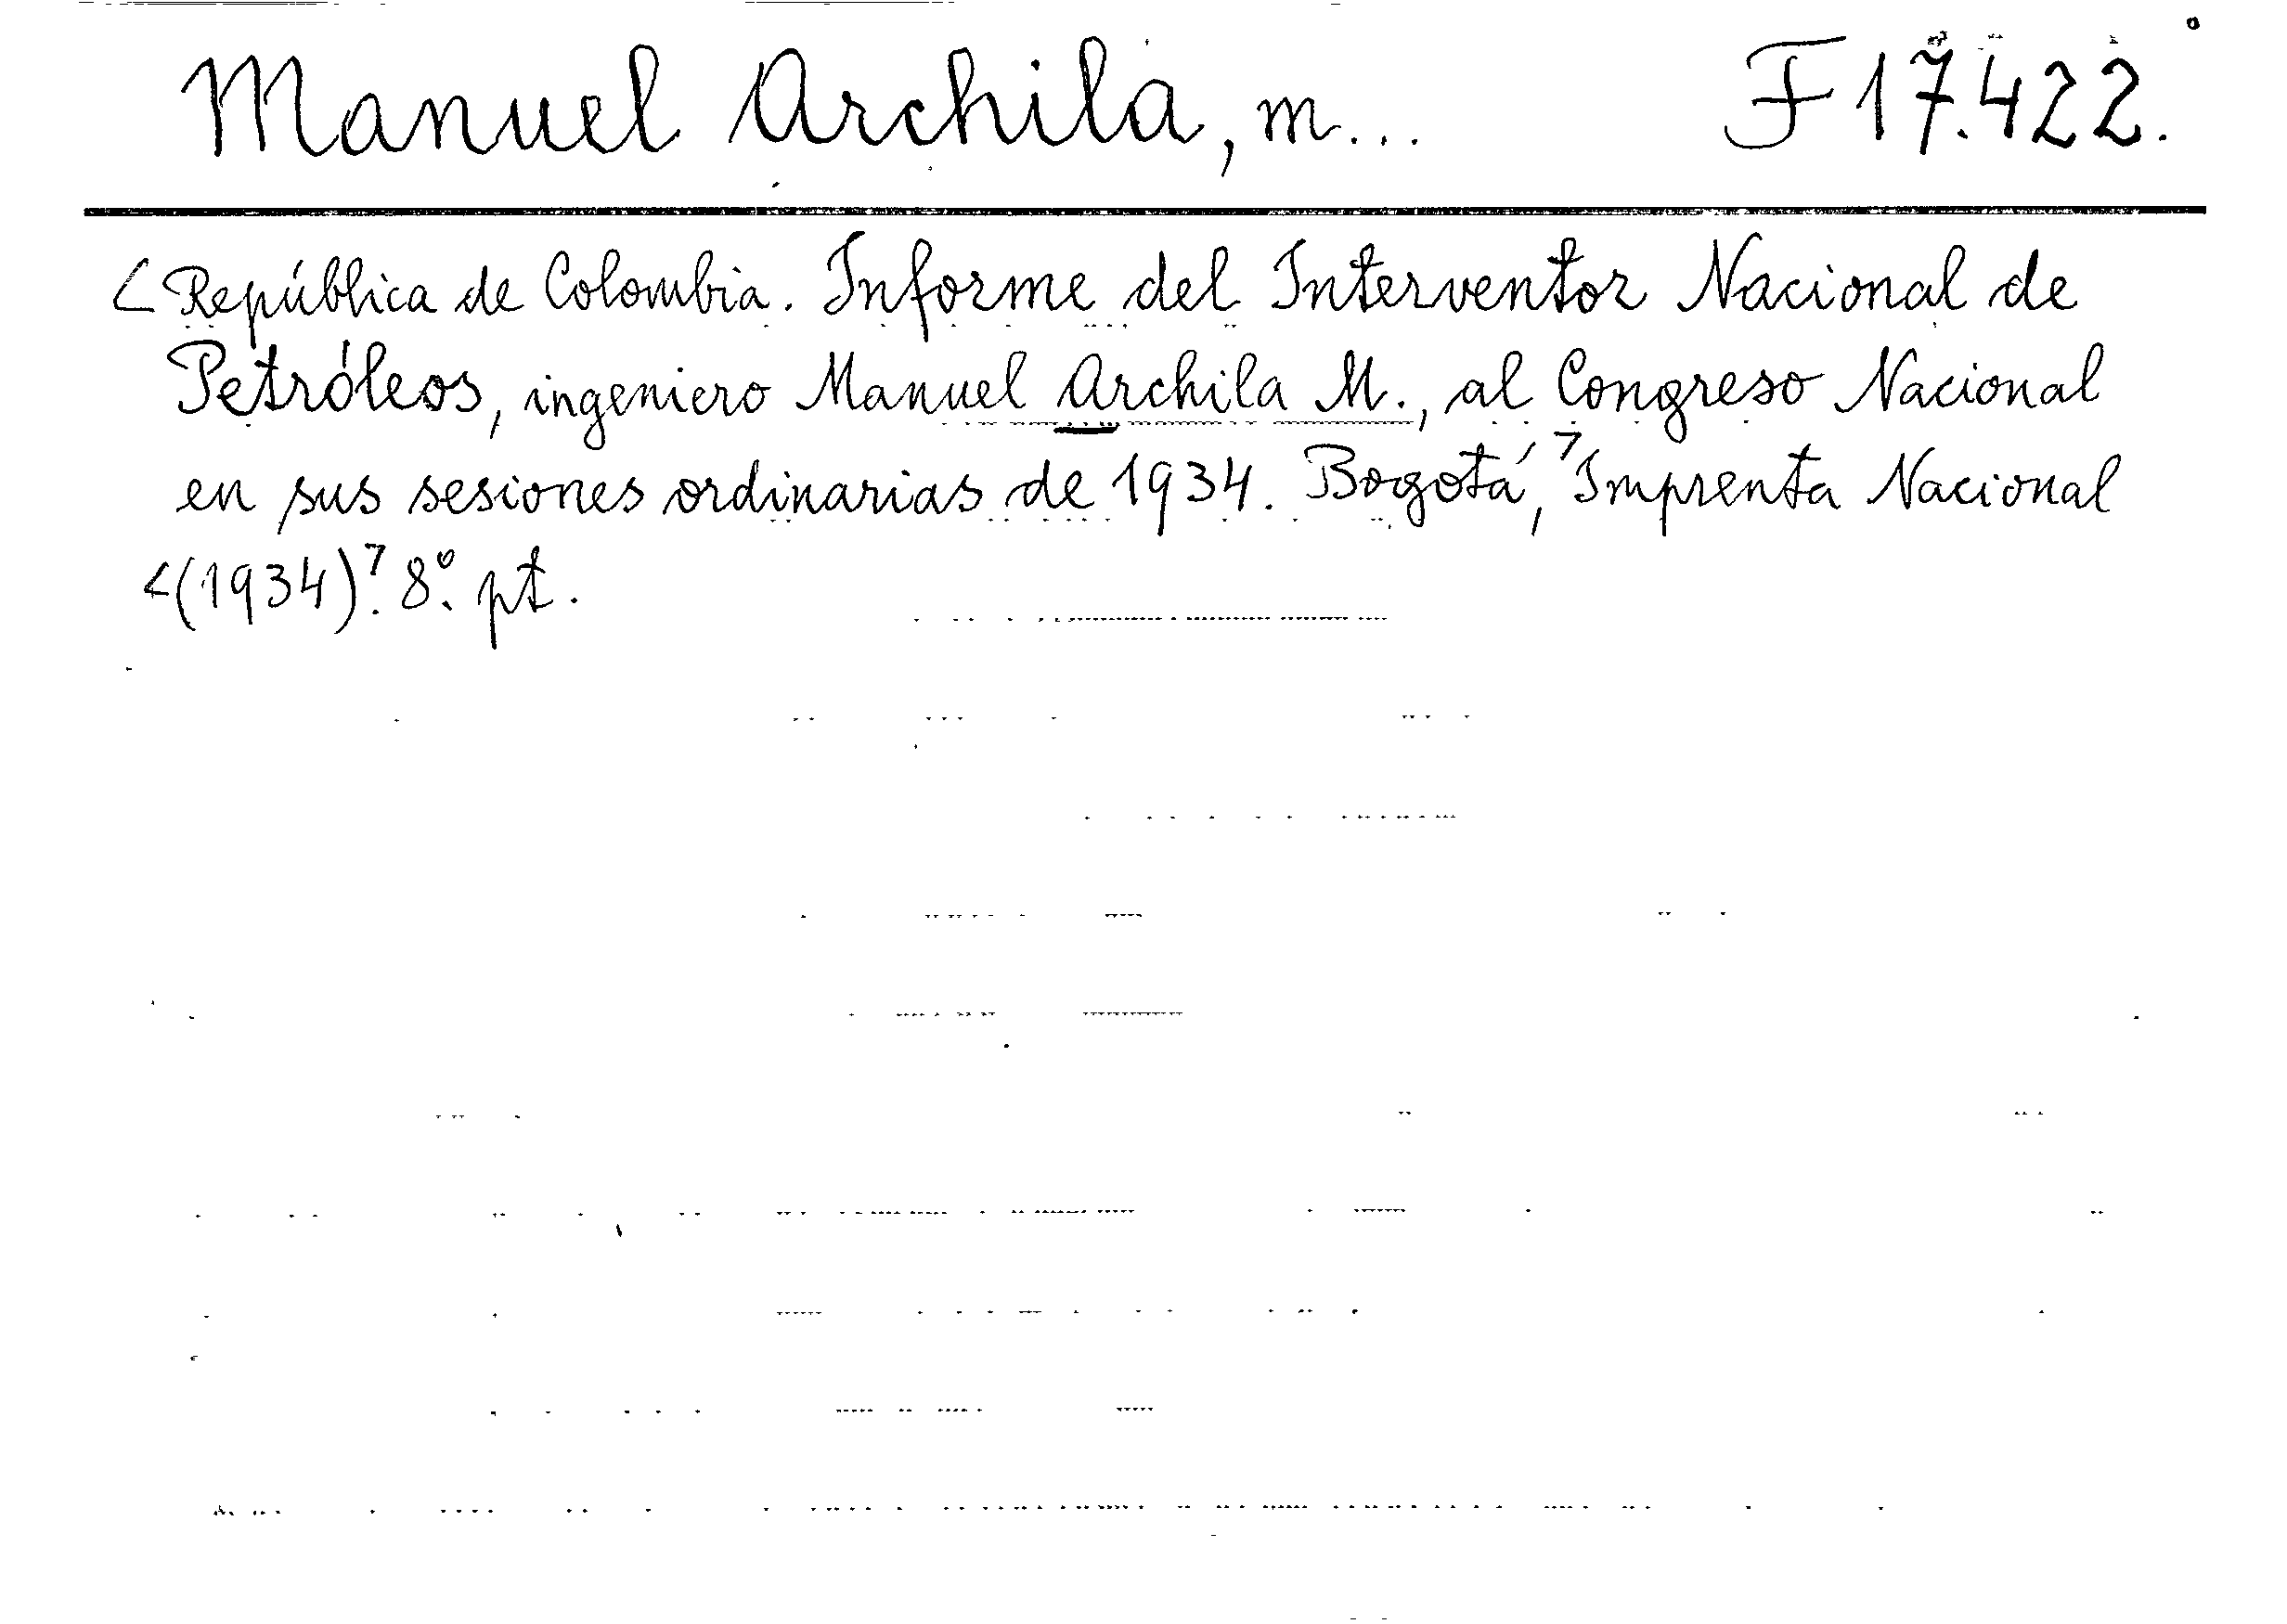 Manuel Archila, m... F 17.422.
<República de Colombia. Informe del Interventor Nacional de
Petróleos, ingeniero Manuel Archila M., al Congreso Nacional
en sus sesiones ordinarias de 1934. Bogotá,> Imprenta Nacional
<(1934)>. 8º. pt.